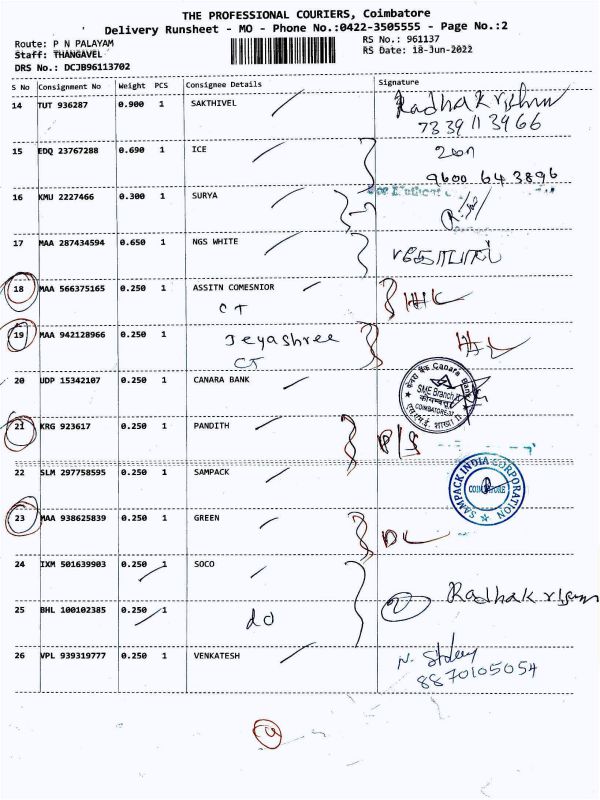 THE PROFESSIONAL COURIERS, Coimbatore
Delivery Runsheet - MO - Phone No.:0422-3505555 - Page No.:2
Route: P N PALAYAM
RS No.: 961137
Staff: THANGAVEL
RS Date: 18-Jun-2022
DRS No.: DCJB96113702
S No Consignment No Weight PCS Consignee Details Signature
14 TUT 936287 0.900 1 SAKTHIVEL Radhakrishnan
7339113966
15 EDQ 23767288 0.690 1 ICE
9600 643896
16 KMU 2227466 0.300 1 SURYA
17 MAA 287434594 0.650 1 NGS WHITE
18 MAA 566375165 0.250 1 ASSITN COMESNIOR
CT
19 MAA 942128966 0.250 1 Jeyashree
CT
20 UDP 15342107 0.250 1 CANARA BANK
केनरा बैंक Canara Bank
SME Branch II
कोयम्बत्तूर
COIMBATORE-37
एस.एम.ई. शाखा II
21 KRG 923617 0.250 1 PANDITH P/S
22 SLM 297758595 0.250 1 SAMPACK
SAMPACK INDIA CORPORATION
COIMBATORE
23 MAA 938625839 0.250 1 GREEN DL
24 IXM 501639903 0.250 1 SOCO
2 Radhakrishnan
25 BHL 100102385 0.250 1 do
26 VPL 939319777 0.250 1 VENKATESH
8870105054